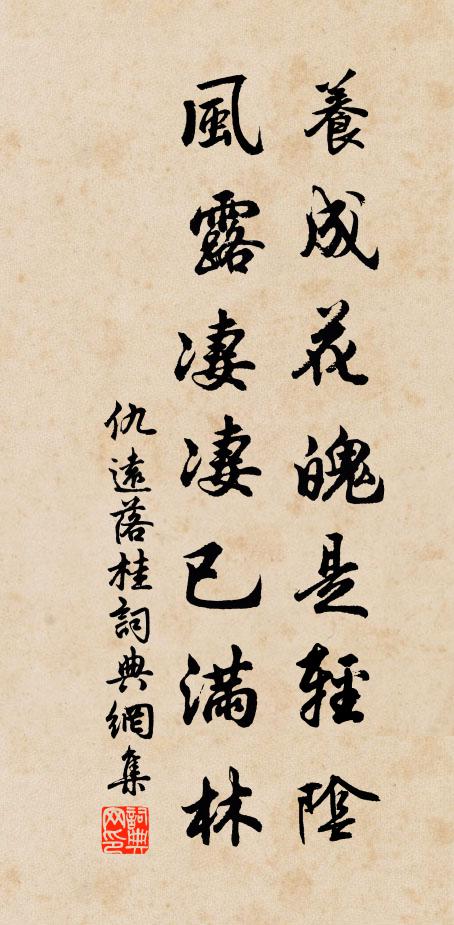 養成花魄是輕陰
風露凄凄已滿林
仇遠落桂詞典網集
詞典網印